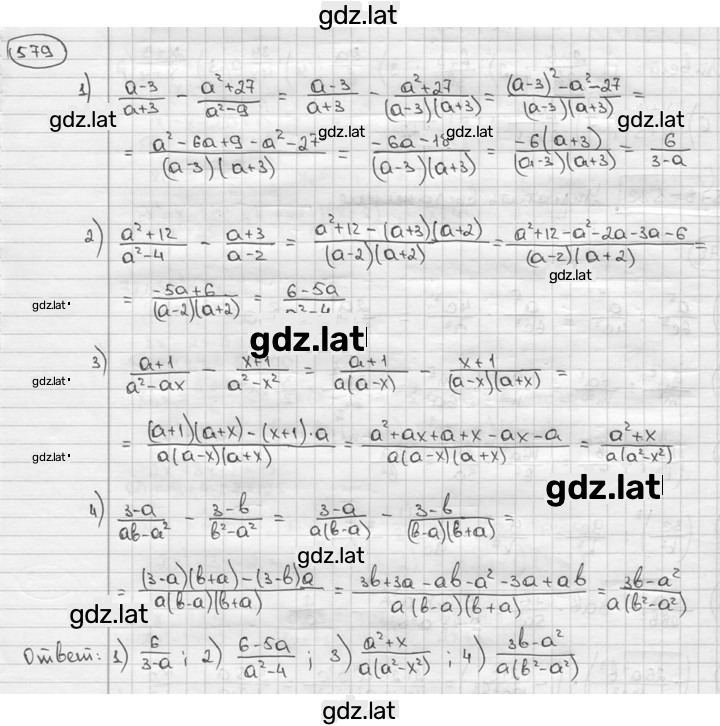 gdz.lat
579
1) (a-3)/(a+3) - (a²+27)/(a²-9) = (a-3)/(a+3) - (a²+27)/((a-3)(a+3)) = ((a-3)²-a²-27)/((a-3)(a+3)) =
gdz.lat gdz.lat gdz.lat gdz.lat
= (a²-6a+9-a²-27)/((a-3)(a+3)) = (-6a-18)/((a-3)(a+3)) = (-6(a+3))/((a-3)(a+3)) = 6/(3-a)
2) (a²+12)/(a²-4) - (a+3)/(a-2) = (a²+12-(a+3)(a+2))/((a-2)(a+2)) = (a²+12-a²-2a-3a-6)/((a-2)(a+2)) =
gdz.lat
gdz.lat = (-5a+6)/((a-2)(a+2)) = (6-5a)/(a²-4)
gdz.lat
3) (a+1)/(a²-ax) - (x+1)/(a²-x²) = (a+1)/(a(a-x)) - (x+1)/((a-x)(a+x)) =
gdz.lat
= ((a+1)(a+x)-(x+1)·a)/(a(a-x)(a+x)) = (a²+ax+a+x-ax-a)/(a(a-x)(a+x)) = (a²+x)/(a(a²-x²))
gdz.lat
gdz.lat
4) (3-a)/(ab-a²) - (3-b)/(b²-a²) = (3-a)/(a(b-a)) - (3-b)/((b-a)(b+a)) =
gdz.lat
= ((3-a)(b+a)-(3-b)a)/(a(b-a)(b+a)) = (3b+3a-ab-a²-3a+ab)/(a(b-a)(b+a)) = (3b-a²)/(a(b²-a²))
gdz.lat gdz.lat
Ответ: 1) 6/(3-a); 2) (6-5a)/(a²-4); 3) (a²+x)/(a(a²-x²)); 4) (3b-a²)/(a(b²-a²))
gdz.lat